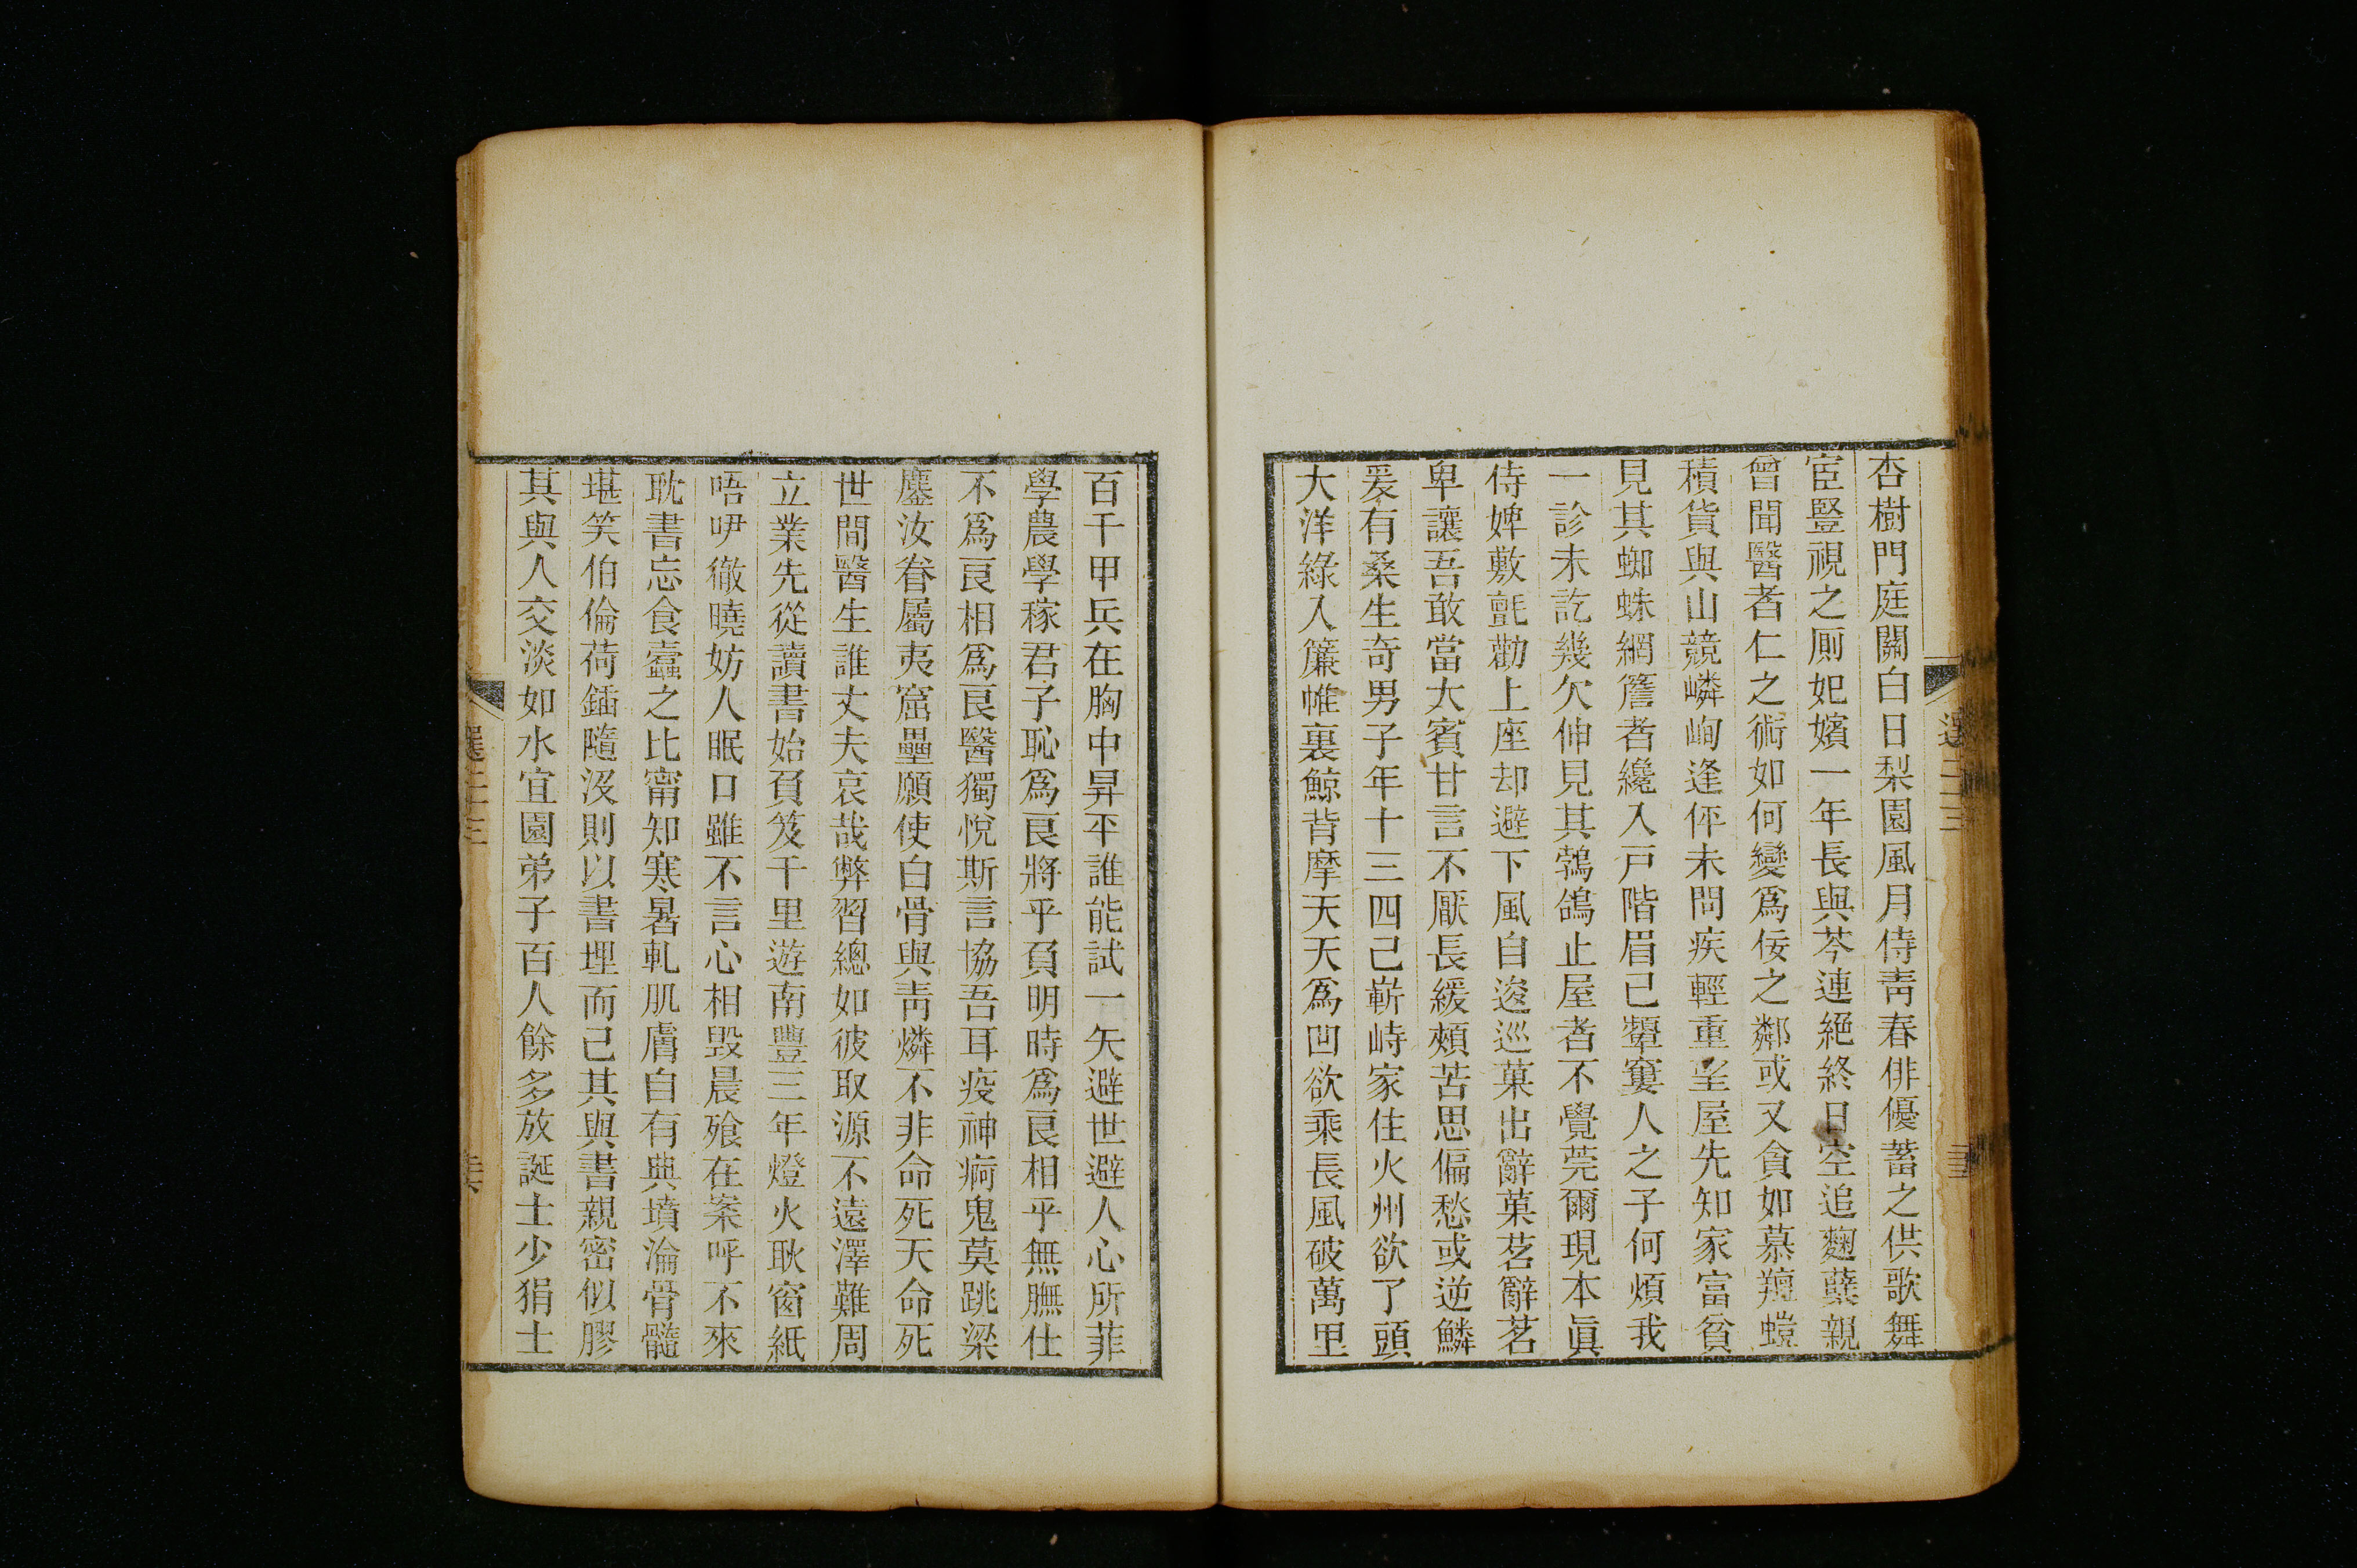 杏樹門庭闢白日梨園風月侍靑春俳優蓄之供歌舞
宦豎視之厠妃嬪一年長與芩連絕終日空追麴櫱親
曾聞醫者仁之術如何變爲佞之鄰或又貪如慕羶螘
積貨與山競嶙峋逢伻未問疾輕重望屋先知家富貧
見其蜘蛛網簷者纔入戸階眉己顰窶人之子何煩我
一診未訖幾欠伸見其鵓鴿止屋者不覺莞爾現本眞
侍婢敷氈勸上座却避下風自逡巡菓出辭菓茗辭茗
卑讓吾敢當大賓甘言不厭長緩頰苦思偏愁或逆鱗
爰有桑生奇男子年十三四己嶄峙家住火州欲了頭
大洋綠入簾帷裏鯨背摩天天爲凹欲乘長風破萬里
百千甲兵在胸中昇平誰能試一矢避世避人心所菲
學農學稼君子恥爲良將乎負明時爲良相乎無膴仕
不爲良相爲良醫獨悅斯言協吾耳疫神痾鬼莫跳梁
鏖汝眷屬夷窟壘願使白骨與靑燐不非命死天命死
世間醫生誰丈夫哀哉弊習總如彼取源不遠澤難周
立業先從讀書始負笈千里遊南豐三年燈火耿窗紙
唔咿徹曉妨人眠口雖不言心相毀晨飱在案呼不來
耽書忘食蠧之比甯知寒暑軋肌膚自有典墳淪骨髓
堪笑伯倫荷鍤隨沒則以書埋而己其與書親密似膠
其與人交淡如水宜園弟子百人餘多放誕士少狷士